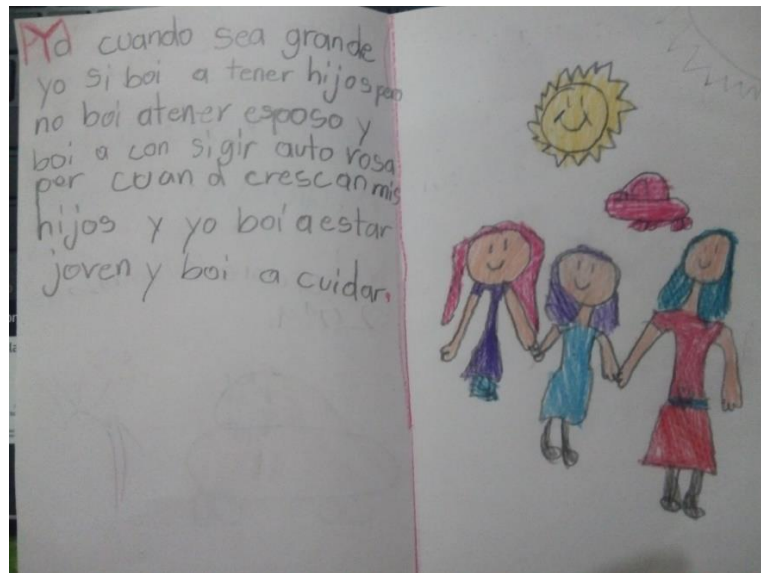 Yo cuando sea grande
yo si boi a tener hijos pero
no boi atener esposo y
boi a con sigir auto rosa
per cuan d crescan mis
hijos y yo boi aestar
joven y boi a cuidar.